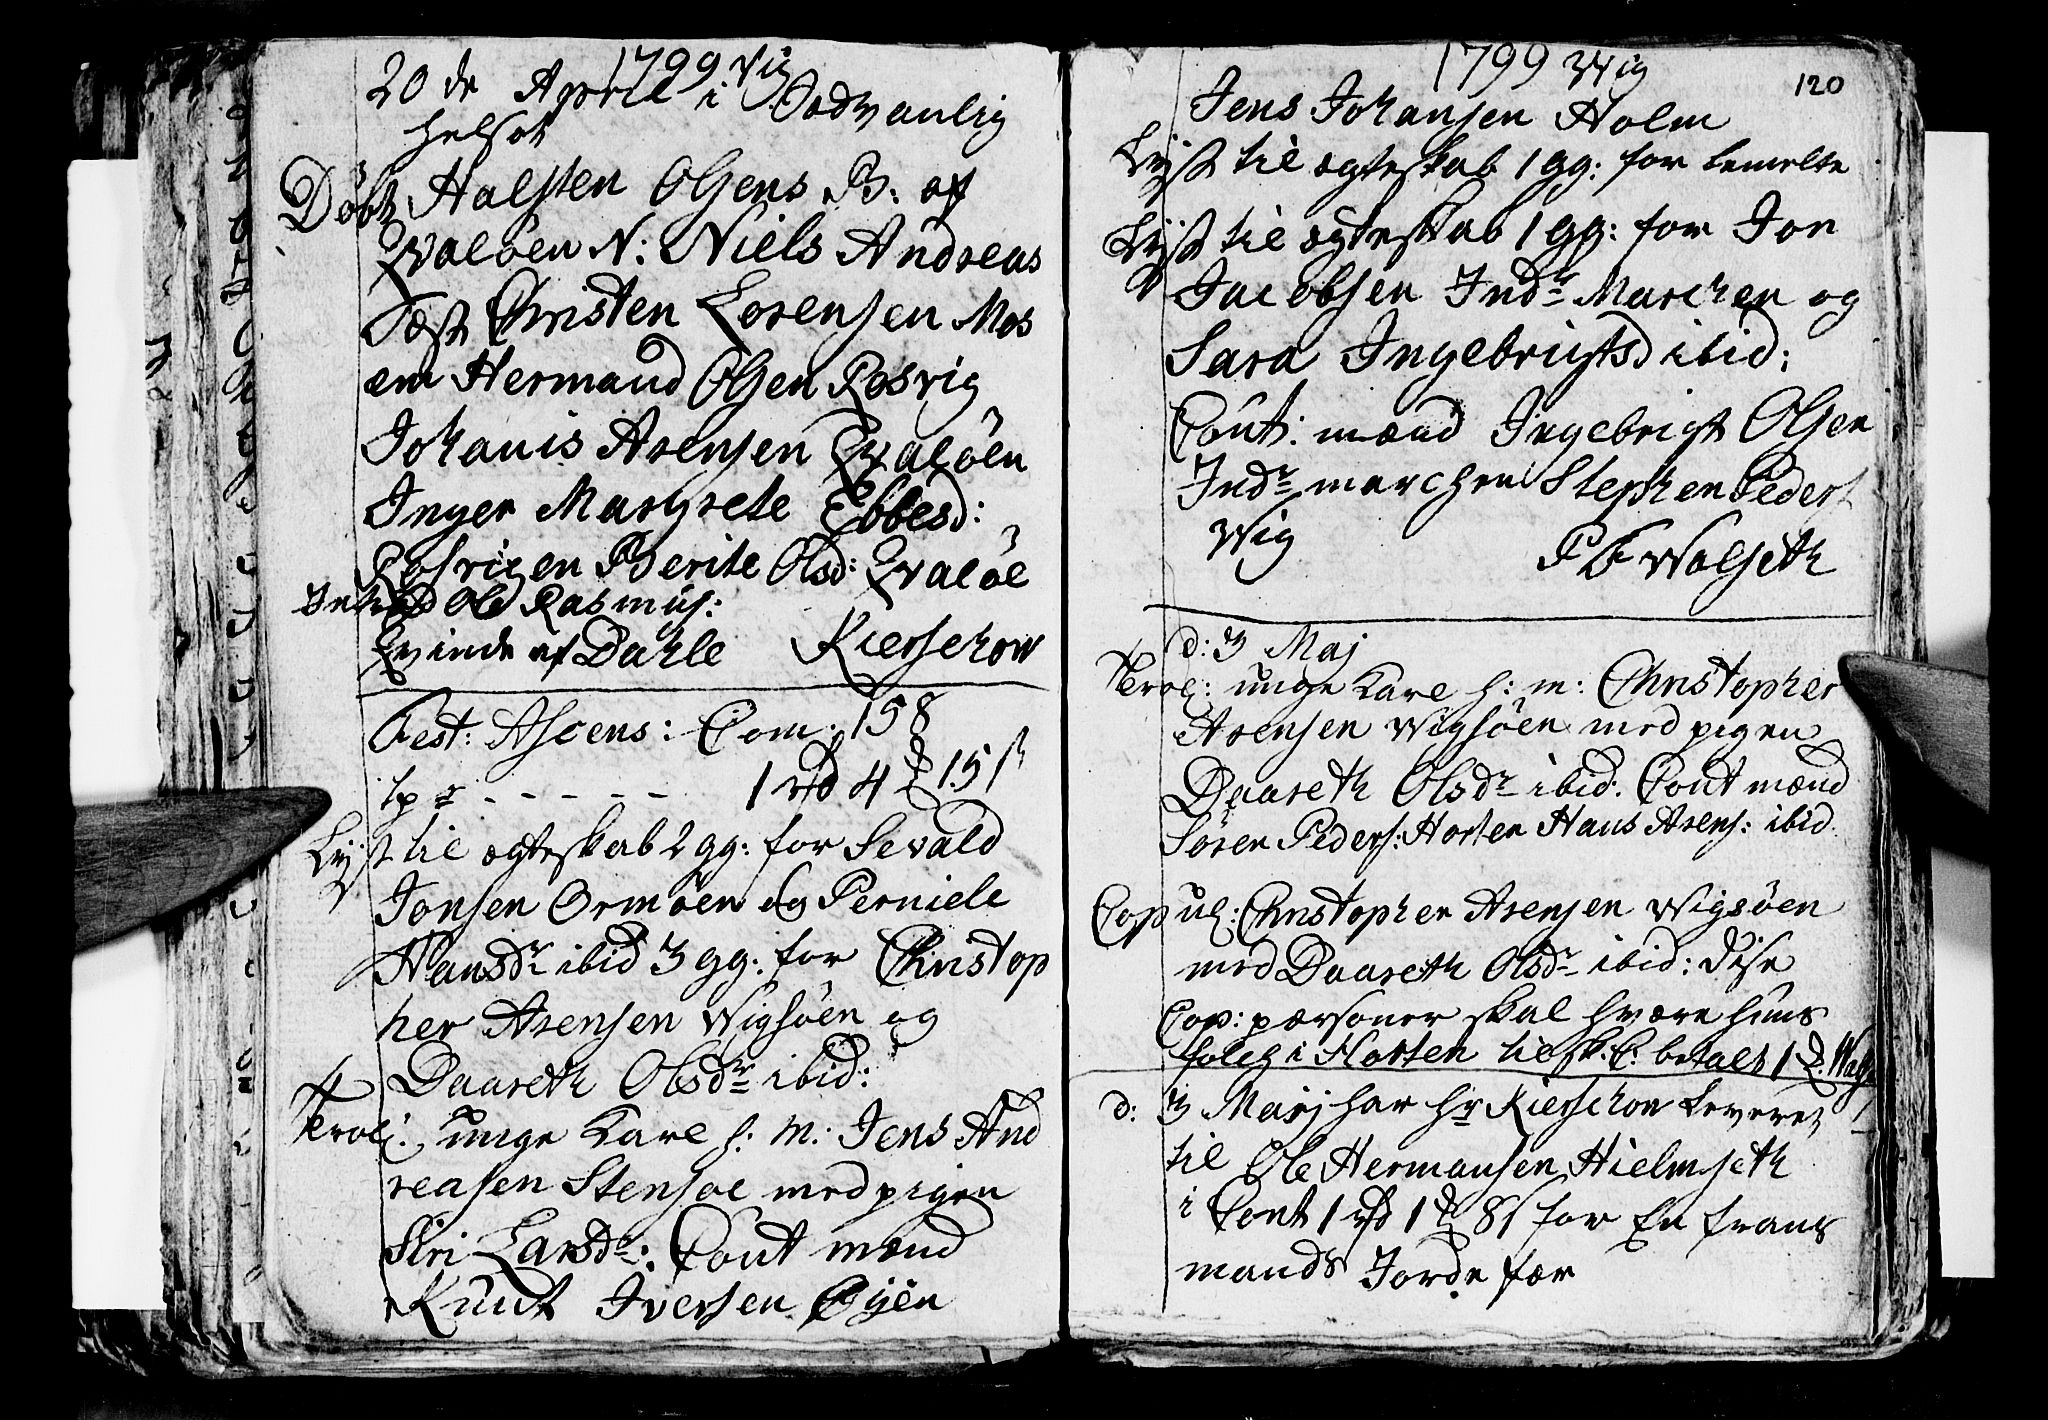 1799 Vig
20 de April i Sædvanlig
helsot
Døbt Halsten Olsens B: af
Qvaløen N: Niels Andreas
Test Christen Lorensen Mos
em Hermand Olsen Rosvig
Johanis Arensen Qvaløen
Inger Margrete Ebbesd:
Rosvigen Berite Olsd: Qvaløe
Introd Ole Rasmus:
Qvinde af Dahle Kierschow
Fest: Ascens: Com: 158
tpr - - - - - 1 rd 4 15 s
Lyst til ægteskab 2 gg: for Sevald
Jonsen Ormøen og Perniele
Hansdr ibid 3 gg: for Christop
her Arensen Wigsøen og
Daareth Olsdr ibid:
Trol: unge Karl h: m: Jens And
reasen Stensøe med pigen
Siri Larsdr: Cout mænd
Knut Iversen Øyen
1799 Wig
120
Jens Johansen Holm
Lyst til ægteskab 1 gg: for bemelte
Lyst til ægteskab 1 gg: for Jon
Jacobsen Indr Marchen og
Sara Ingebrigtsd ibid:
Cout: mænd Ingebrigt Olsen
Indr marchen Stephen Peders
Wig
P B Wolseth
d: 3 Maj
Trol: unge Karl h: m: Christopher
Arensen Wigsøen med pigen
Daareth Olsdr ibid. Cout mænd
Søren Peders: Horten Hans Arens: ibid
Copul: Christopher Arensen Wigsøen
med Daareth Olsdr ibid: dise
Cop: personer skal hvære huus
folch i Horten til sk: C: betalt 1
d: 3 Maij har hr Kierschow Leveret
til Ole Hermansen Hielmseth
i Cont 1 rd 1 8 s for En frans
mands Jorde fær